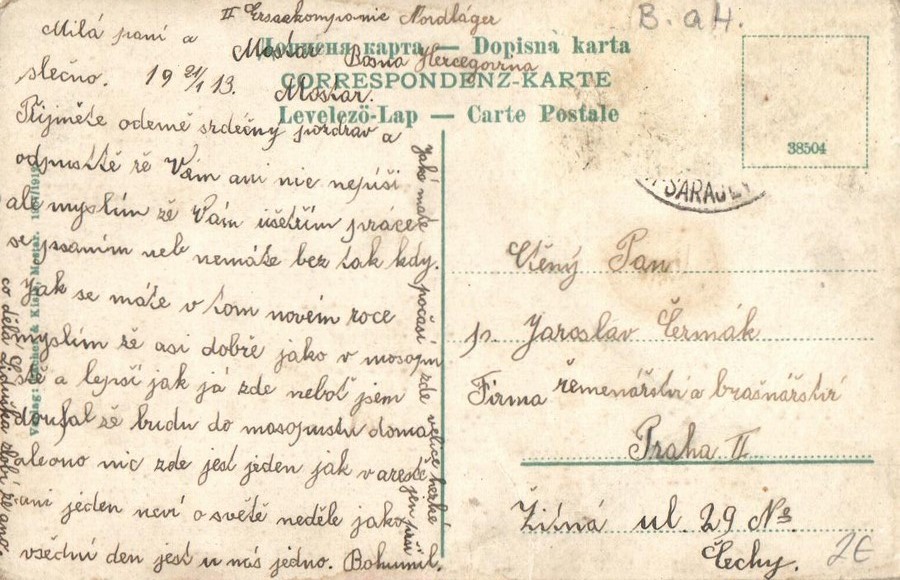 II Ersaekompanie Nordläger
Mostar Bosna Hercegovina
B. a H.
Дописня карта — Dopisna karta
CORRESPONDENZ-KARTE
Levelező-Lap — Carte Postale
38504
SARAJEV
Milá paní a
slečno. 19 21/1 13. Mostar.
Přijměte odemě srdečný pozdrav a
odpusťtě žě Vám ani nic nepíši
ale myslím žě Vám ušetřím práce
se psaním neb nemáte bez tak kdy.
Jak se máte v tom novém roce
myslím žě asi dobře jako v masopu
stě a lepší jak já zde neboť jsem
doufal žě budu do masopustu doma
aleono nic zde jest jeden jak v arestě
ani jeden neví o světě neděle jako
všední den jest u nás jedno. Bohumil.
Jaké máte počasí zde velice hezké
jen prší
co dělá Liduška zlobí že ano
Verlag: & Kisić, Mostar.
Ctěný Pan
p. Jaroslav Čermák
Firma řemenářství a brašnářství
Praha II
Žitná ul. 29 No
Čechy.
2E